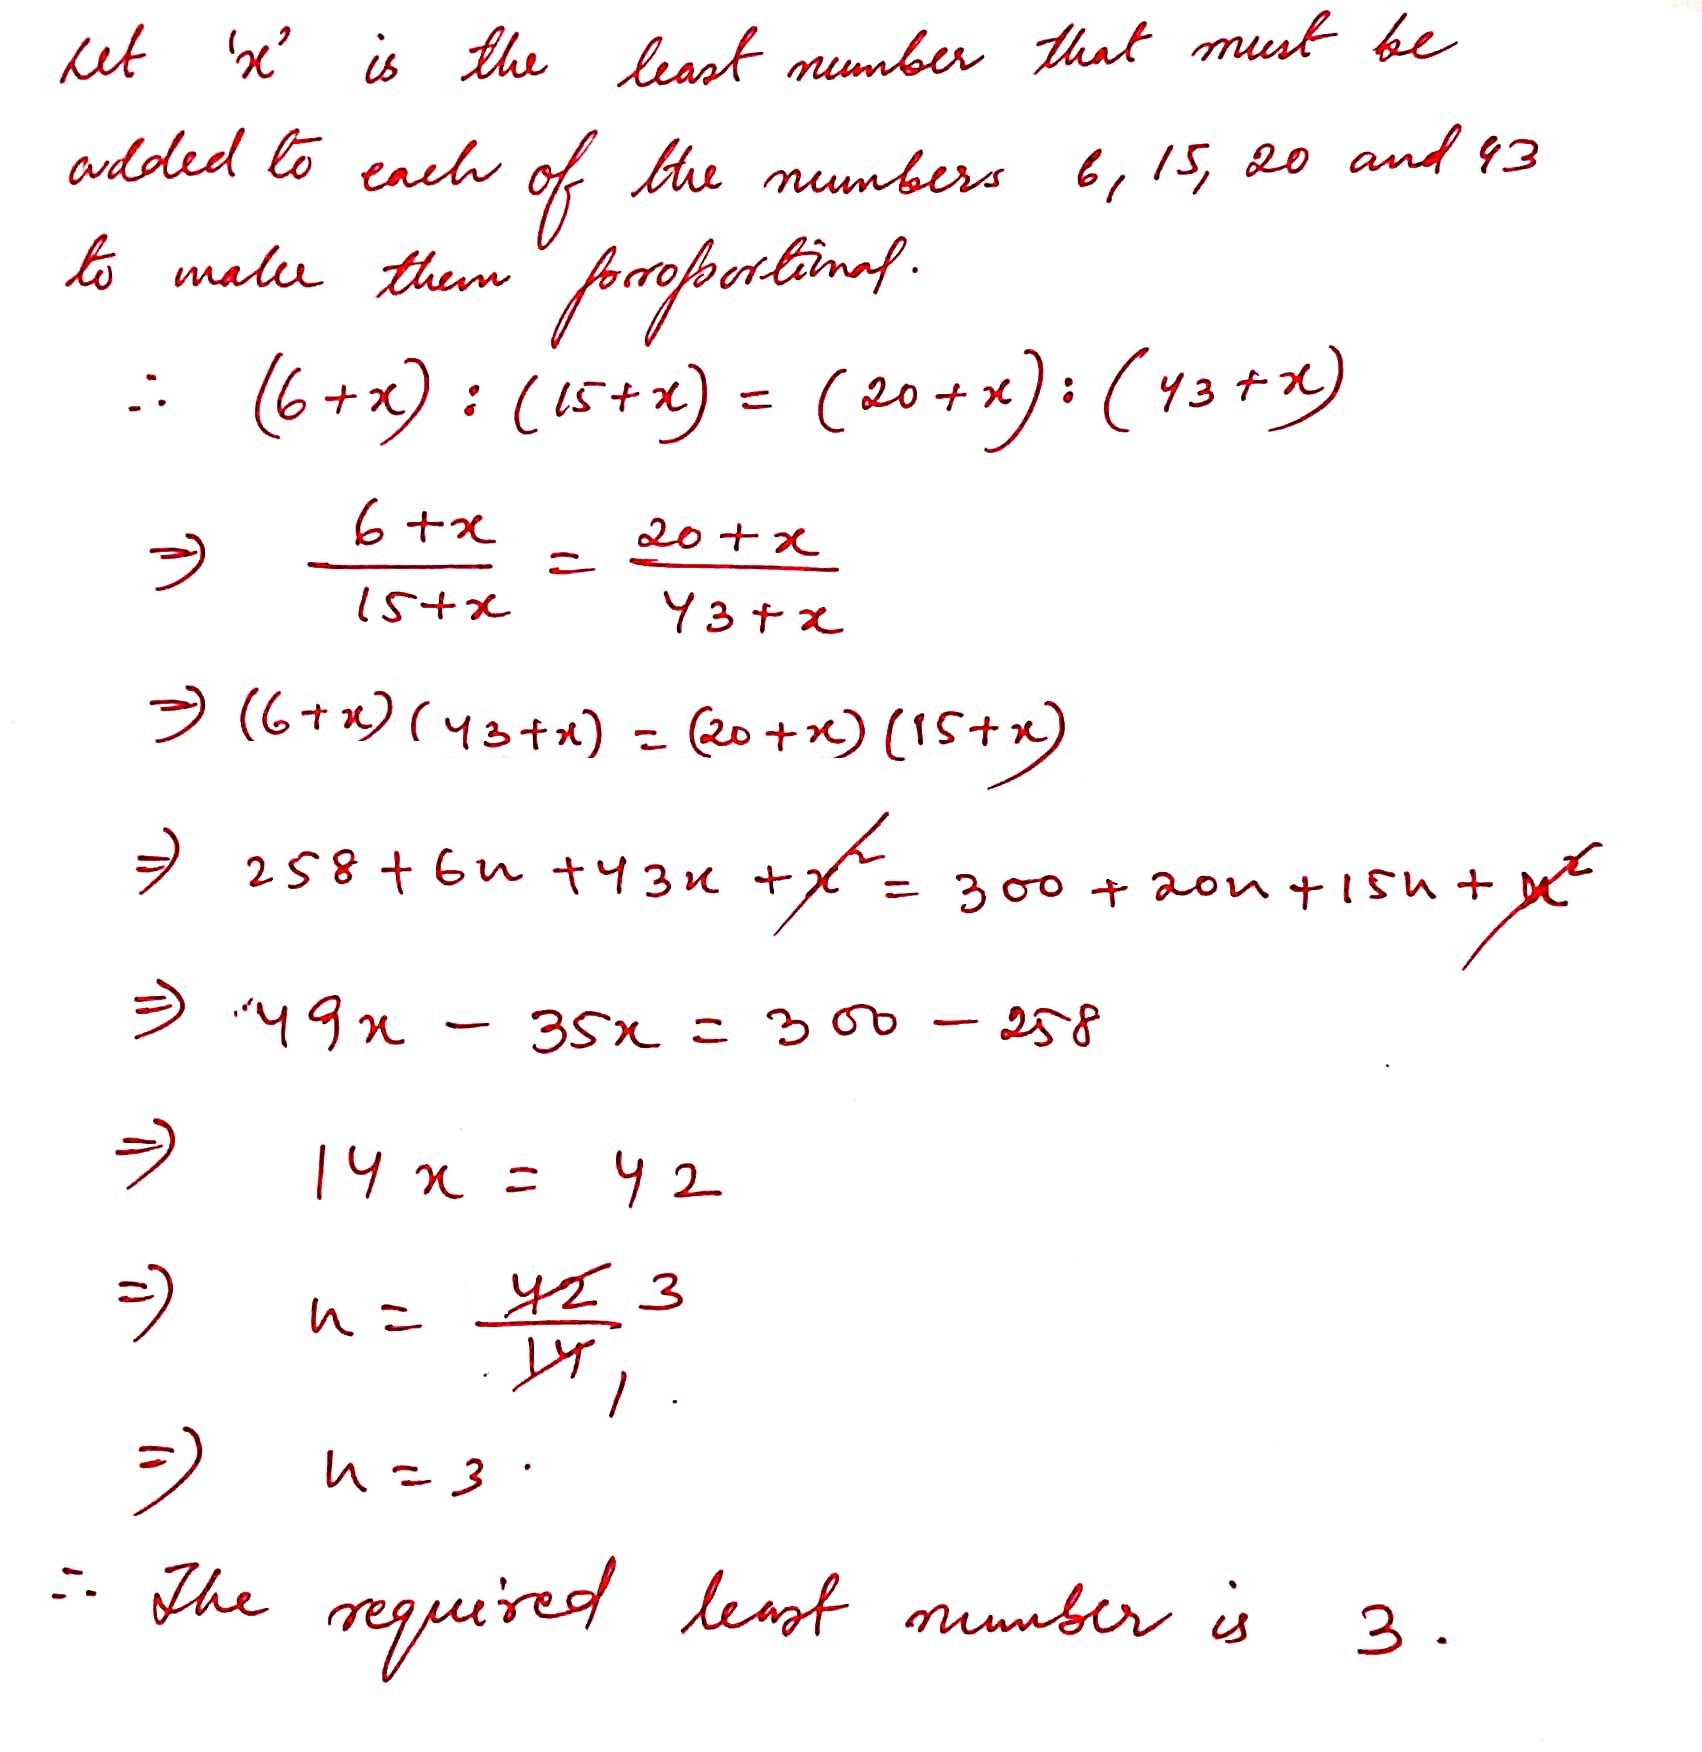 Let 'x' is the least number that must be
added to each of the numbers 6, 15, 20 and 43
to make them proportional.
∴ (6+x) : (15+x) = (20+x) : (43+x)
⇒ (6+x)/(15+x) = (20+x)/(43+x)
⇒ (6+x)(43+x) = (20+x)(15+x)
⇒ 258 + 6x + 43x + x² = 300 + 20x + 15x + x²
⇒ 49x - 35x = 300 - 258
⇒ 14x = 42
⇒ x = 42/14 3 1
⇒ x = 3.
∴ The required least number is 3.